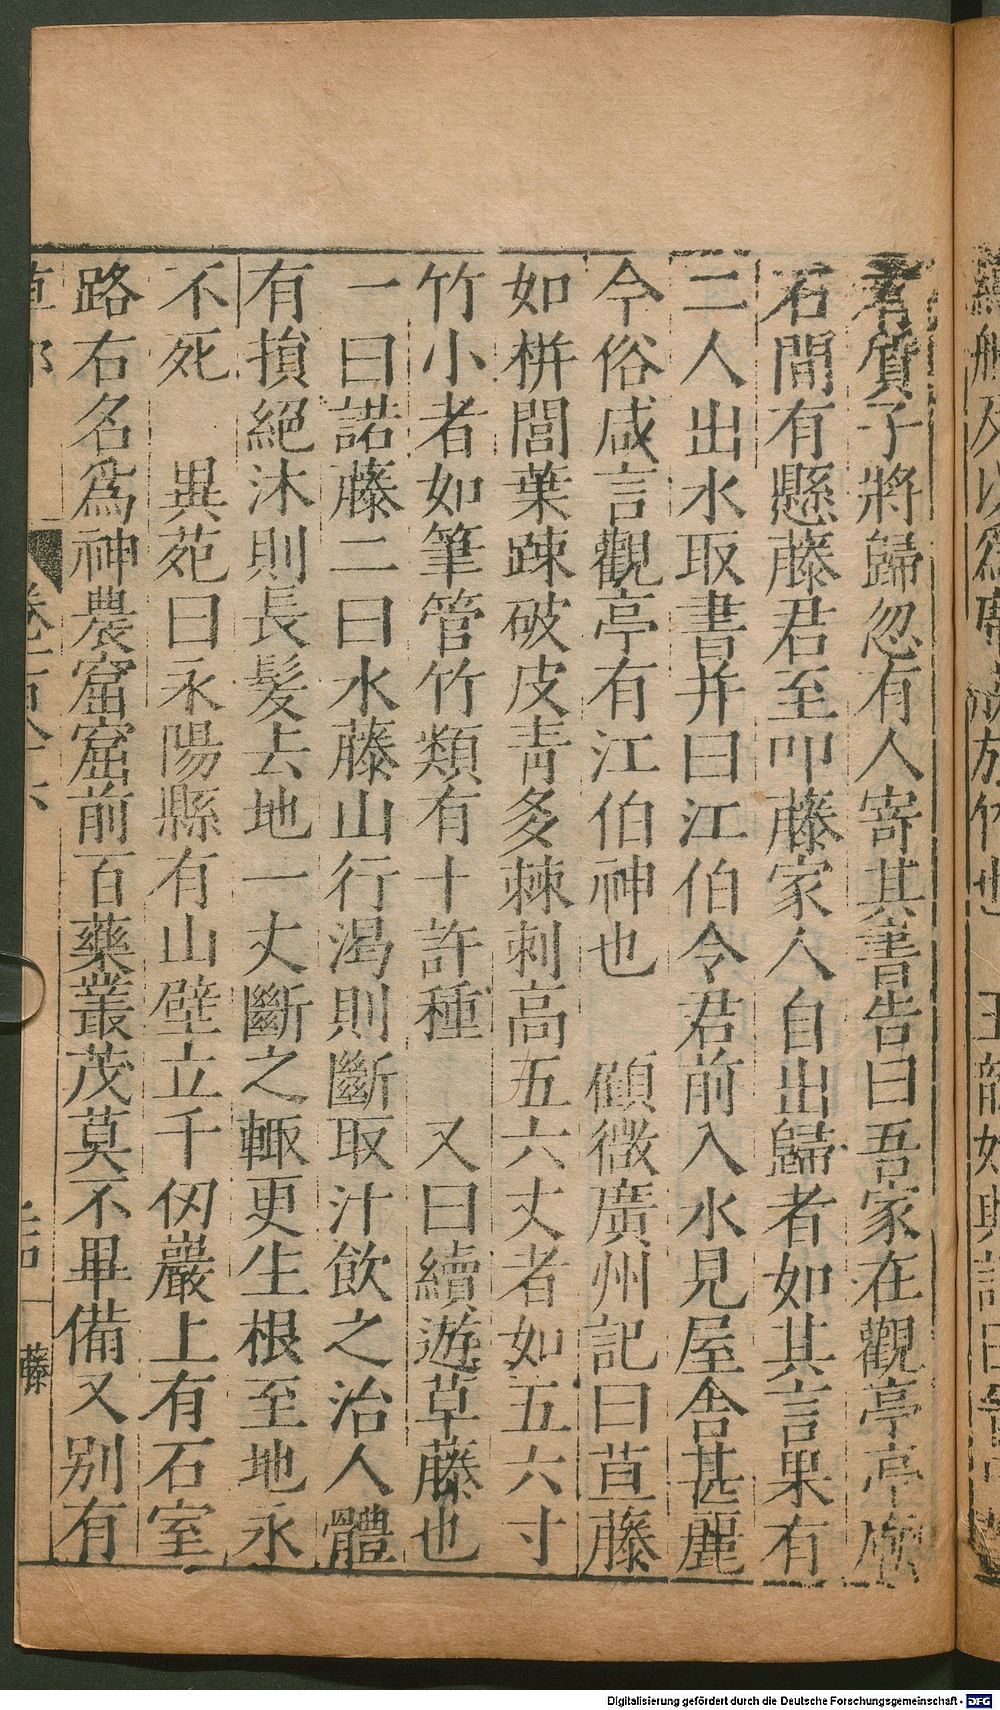 君質子將歸忽有人寄其書告曰吾家在觀亭亭廟
石間有懸藤君至叩藤家人自出歸者如其言果有
二人出水取書并曰江伯令君前入水見屋舍甚麗
今俗咸言觀亭有江伯神也　顧微廣州記曰草藤
如栟閭葉踈破皮青多棘刺高五六丈者如五六寸
竹小者如筆管竹類有十許種　又曰續遊草藤也
一曰諾藤二曰水藤山行渴則斷取汁飲之治人體
有損絕沐則長髮去地一丈斷之輙更生根至地永
不死　異苑曰永陽縣有山壁立千仭巖上有石室
路右名爲神農窟窟前百藥叢茂莫不畢備又別有
藤
Digitalisierung gefördert durch die Deutsche Forschungsgemeinschaft - DFG